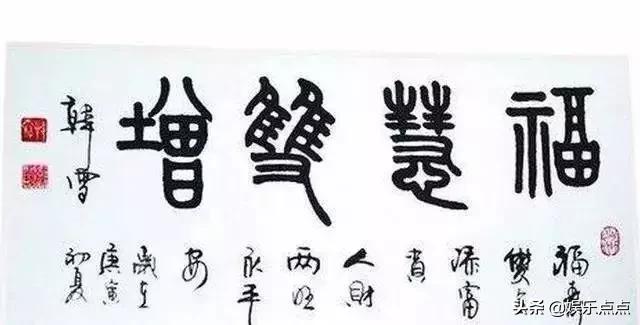 福慧雙增
福壽
雙全
富
貴
人財
两旺
永平
安
歲在
庚寅
初夏
韓雪
头条 @娱乐点点